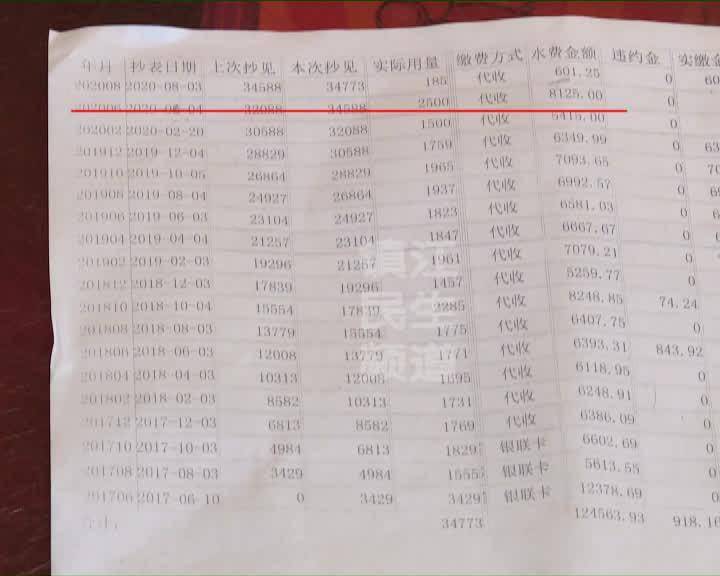 年月 抄表日期 上次抄见 本次抄见 实际用量 缴费方式 水费金额 违约金 实缴金
202008 2020-08-03 34588 34773 185 代收 601.25 0 60
202006 2020-06-04 32088 34588 2500 代收 8125.00 0
202002 2020-02-20 30588 32088 1500 代收 5415.00
201912 2019-12-04 28829 30588 1759 代收 6349.99 0 63
201910 2019-10-05 26864 28829 1965 代收 7093.65 0 70
201908 2019-08-04 24927 26864 1937 代收 6992.57 0 69
201906 2019-06-03 23104 24927 1823 代收 6581.03 0 6
201904 2019-04-04 21257 23104 1847 代收 6667.67 0
201902 2019-02-03 19296 21257 1961 代收 7079.21 0
201812 2018-12-03 17839 19296 1457 代收 5259.77 0
201810 2018-10-04 15554 17839 2285 代收 8248.85 74.24
201808 2018-08-03 13779 15554 1775 代收 6407.75 0
201806 2018-06-03 12008 13779 1771 代收 6393.31 843.92
201804 2018-04-03 10313 12008 1695 代收 6118.95 0
201802 2018-02-03 8582 10313 1731 代收 6248.91 0
201712 2017-12-03 6813 8582 1769 代收 6386.09 0
201710 2017-10-03 4984 6813 1829 银联卡 6602.69 0
201708 2017-08-03 3429 4984 1555 银联卡 5613.55 0
201706 2017-06-10 0 3429 3429 银联卡 12378.69 0
合计: 34773 124563.93 918.16
镇江
民生
频道